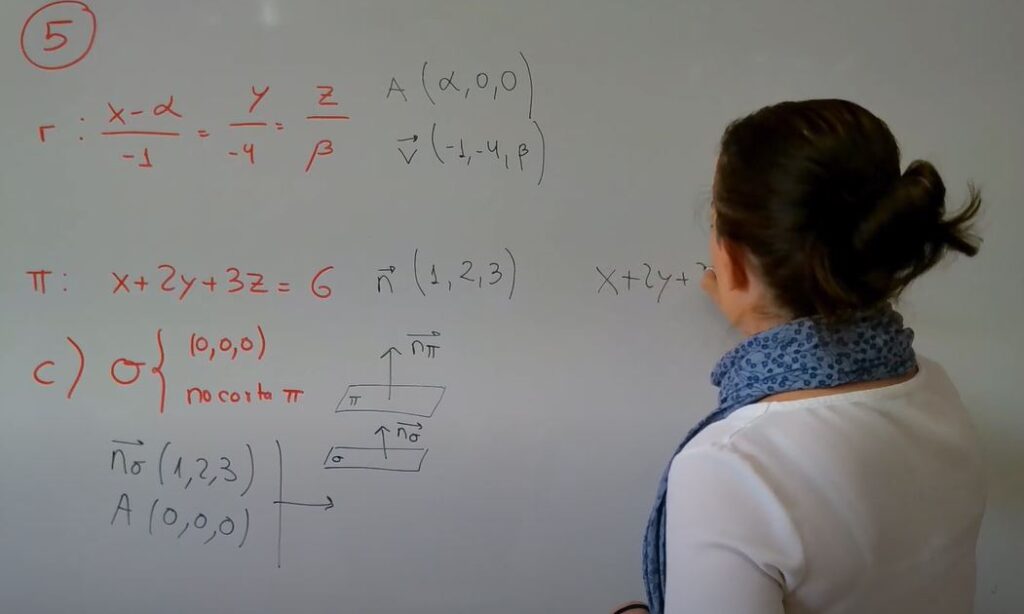 5
r : x-α/-1 = y/-4 = z/β
A (α,0,0)
v⃗ (-1,-4,β)
π: x+2y+3z = 6
n⃗ (1,2,3)
x+2y+
c) σ { (0,0,0)
no corta π
n⃗π
π
n⃗σ
σ
n⃗σ (1,2,3)
A (0,0,0)